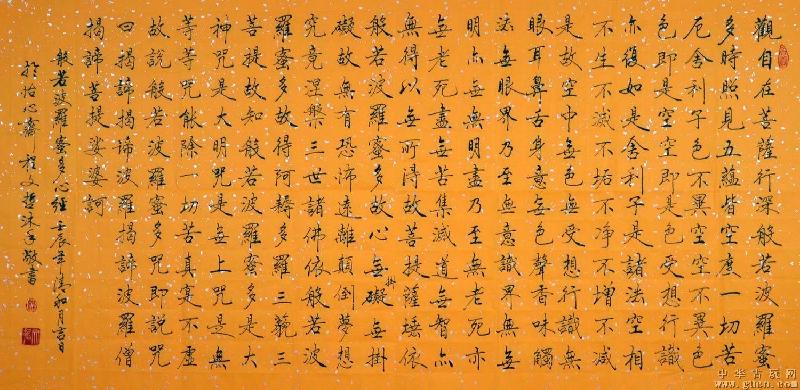 觀自在菩薩行深般若波羅蜜
多時照見五蘊皆空度一切苦
厄舍利子色不異空空不異色
色即是空空即是色受想行識
亦復如是舍利子是諸法空相
不生不滅不垢不净不增不減
是故空中無色無受想行識無
眼耳鼻舌身意無色聲香味觸
法無眼界乃至無意識界無無
明亦無無明盡乃至無老死亦
無老死盡無苦集滅道無智亦
無得以無所得故菩提薩埵依
般若波羅蜜多故心無掛礙無掛
礙故無有恐怖遠離顛倒夢想
究竟涅槃三世諸佛依般若波
羅蜜多故得阿耨多羅三藐三
菩提故知般若波羅蜜多是大
神咒是大明咒是無上咒是無
等等咒能除一切苦真實不虛
故說般若波羅蜜多咒即說咒
曰揭諦揭諦波羅揭諦波羅僧
揭諦菩提娑婆訶
般若波羅蜜多心經壬辰年清和月吉日
於怡心齋程文哲沐手敬書
中华古玩网
www.gucn.com